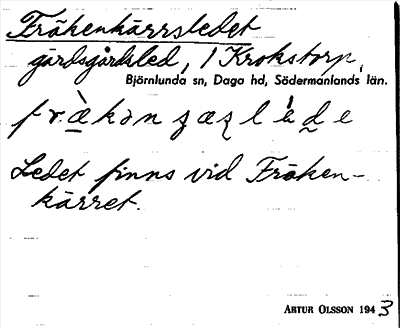 Fräkenkärrsledet
gärdsgårdsled, i Krokstorp,
Björnlunda sn, Daga hd, Södermanlands län.
Ledet finns vid Fräken-
kärret.
ARTUR OLSSON 1943